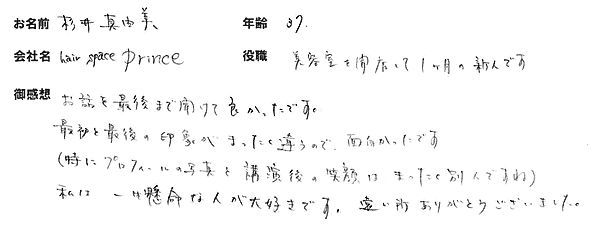 お名前 杉井真由美 年齢 37.
会社名 hair space prince 役職 美容室を開店して1ヶ月の新人です
御感想 お話を最後まで聞けて良かったです。
最初と最後の印象がまったく違うので、面白かったです
(特にプロフィールの写真と講演後の笑顔はまったく別人ですね)
私は一生懸命な人が大好きです。遠い所ありがとうございました。